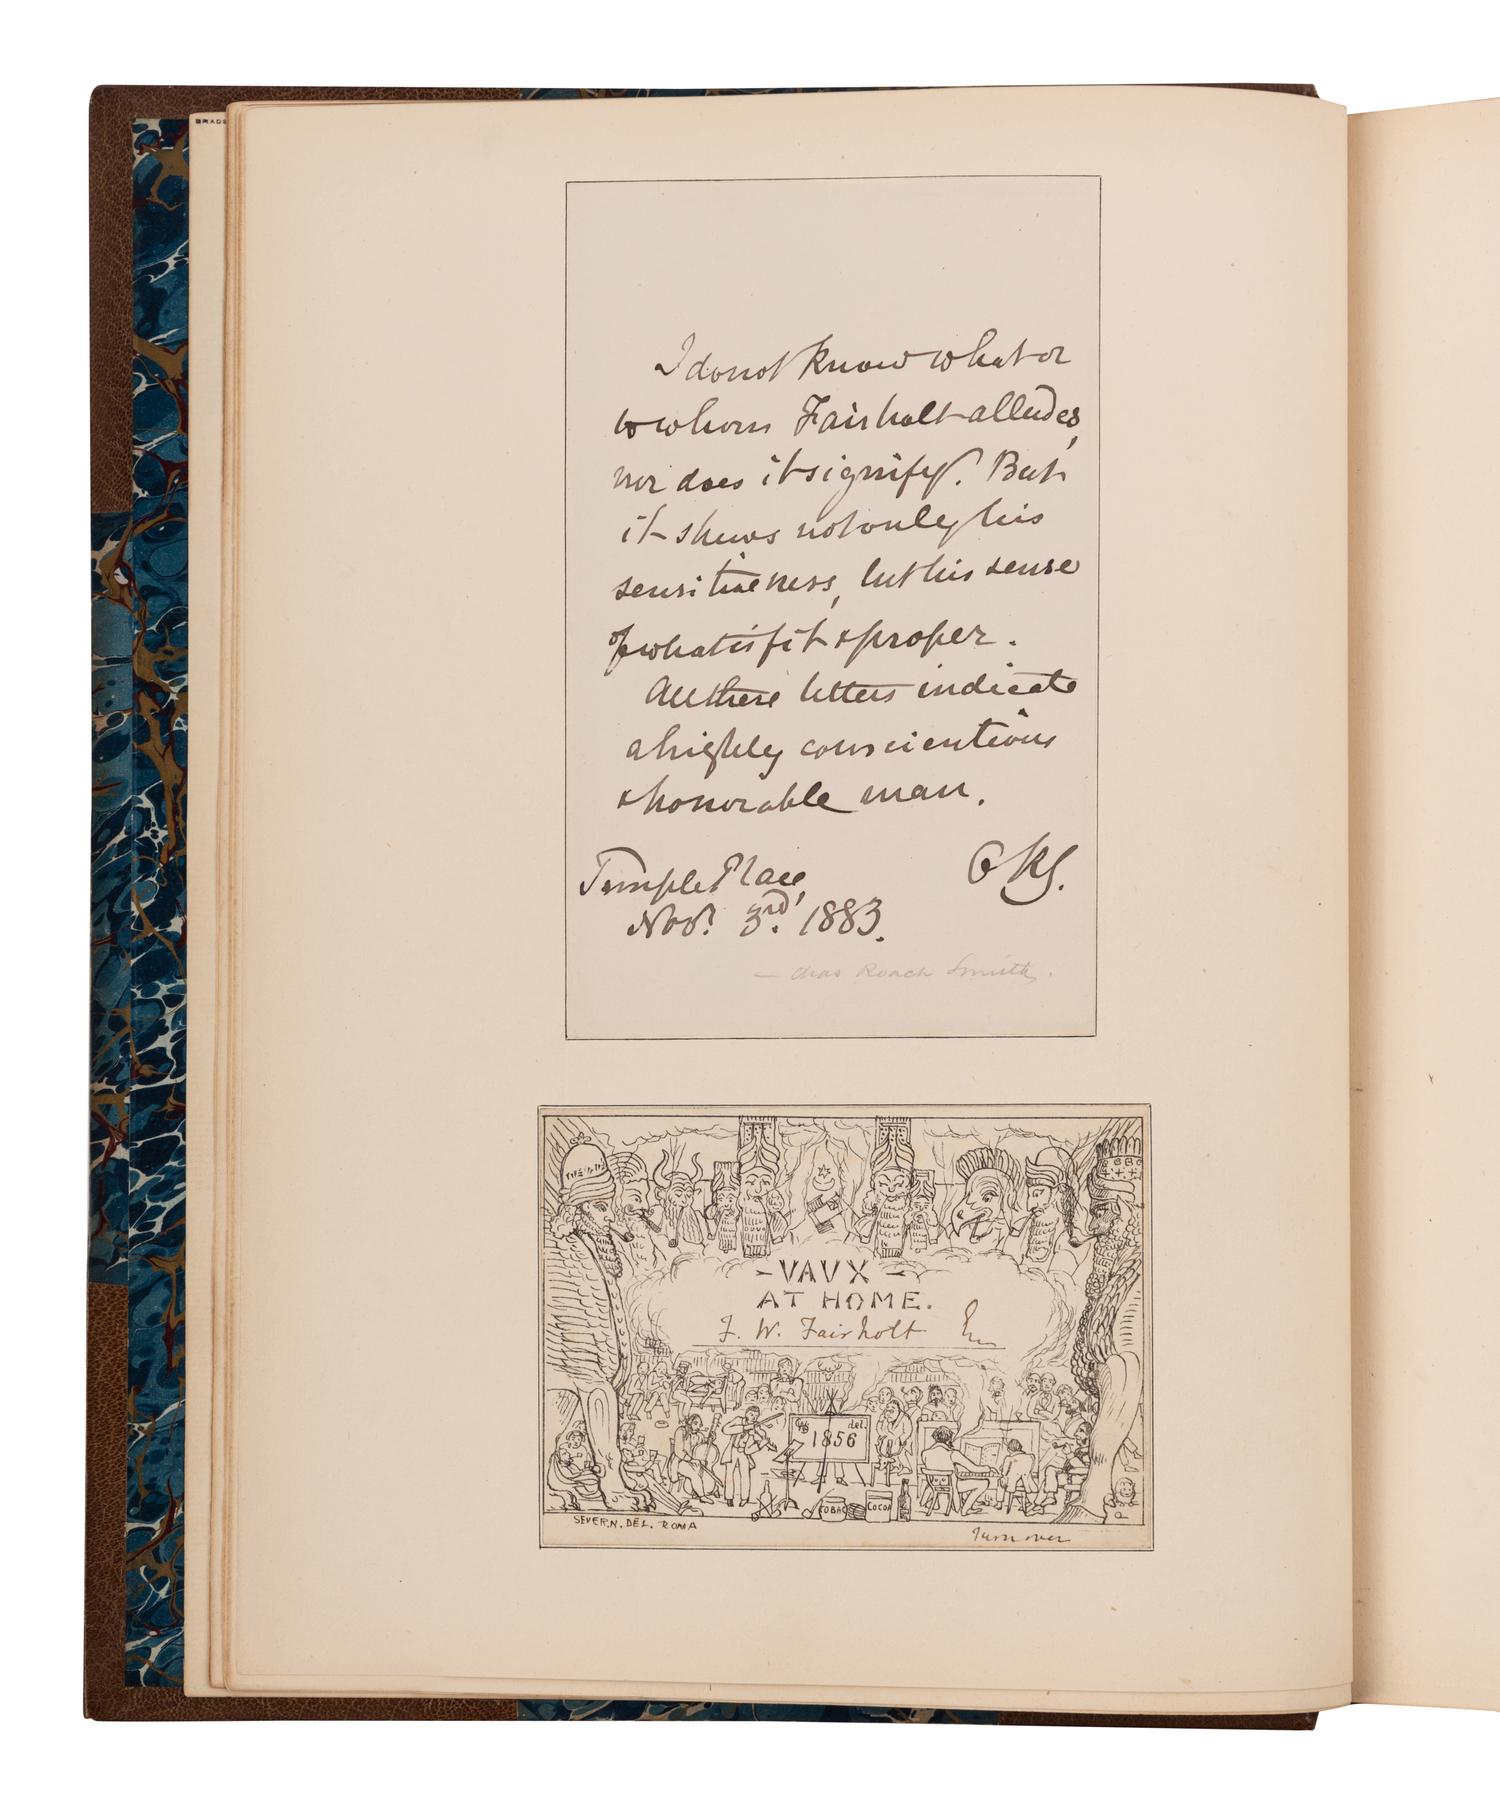 I do not know what or
to whom Fairholt alludes,
nor does it signify. But
it shews not only his
sensitiveness, but his sense
of what is fit & proper.
All these letters indicate
a highly conscientious
& honorable man.
CRS.
Temple Place,
Novr. 3rd, 1883.
— Chas Roach Smith.
- VAUX -
AT HOME.
F. W. Fairholt Esq
del.
1856
TOBAC
COCOA
SEVERN. DEL. ROMA
Turn over